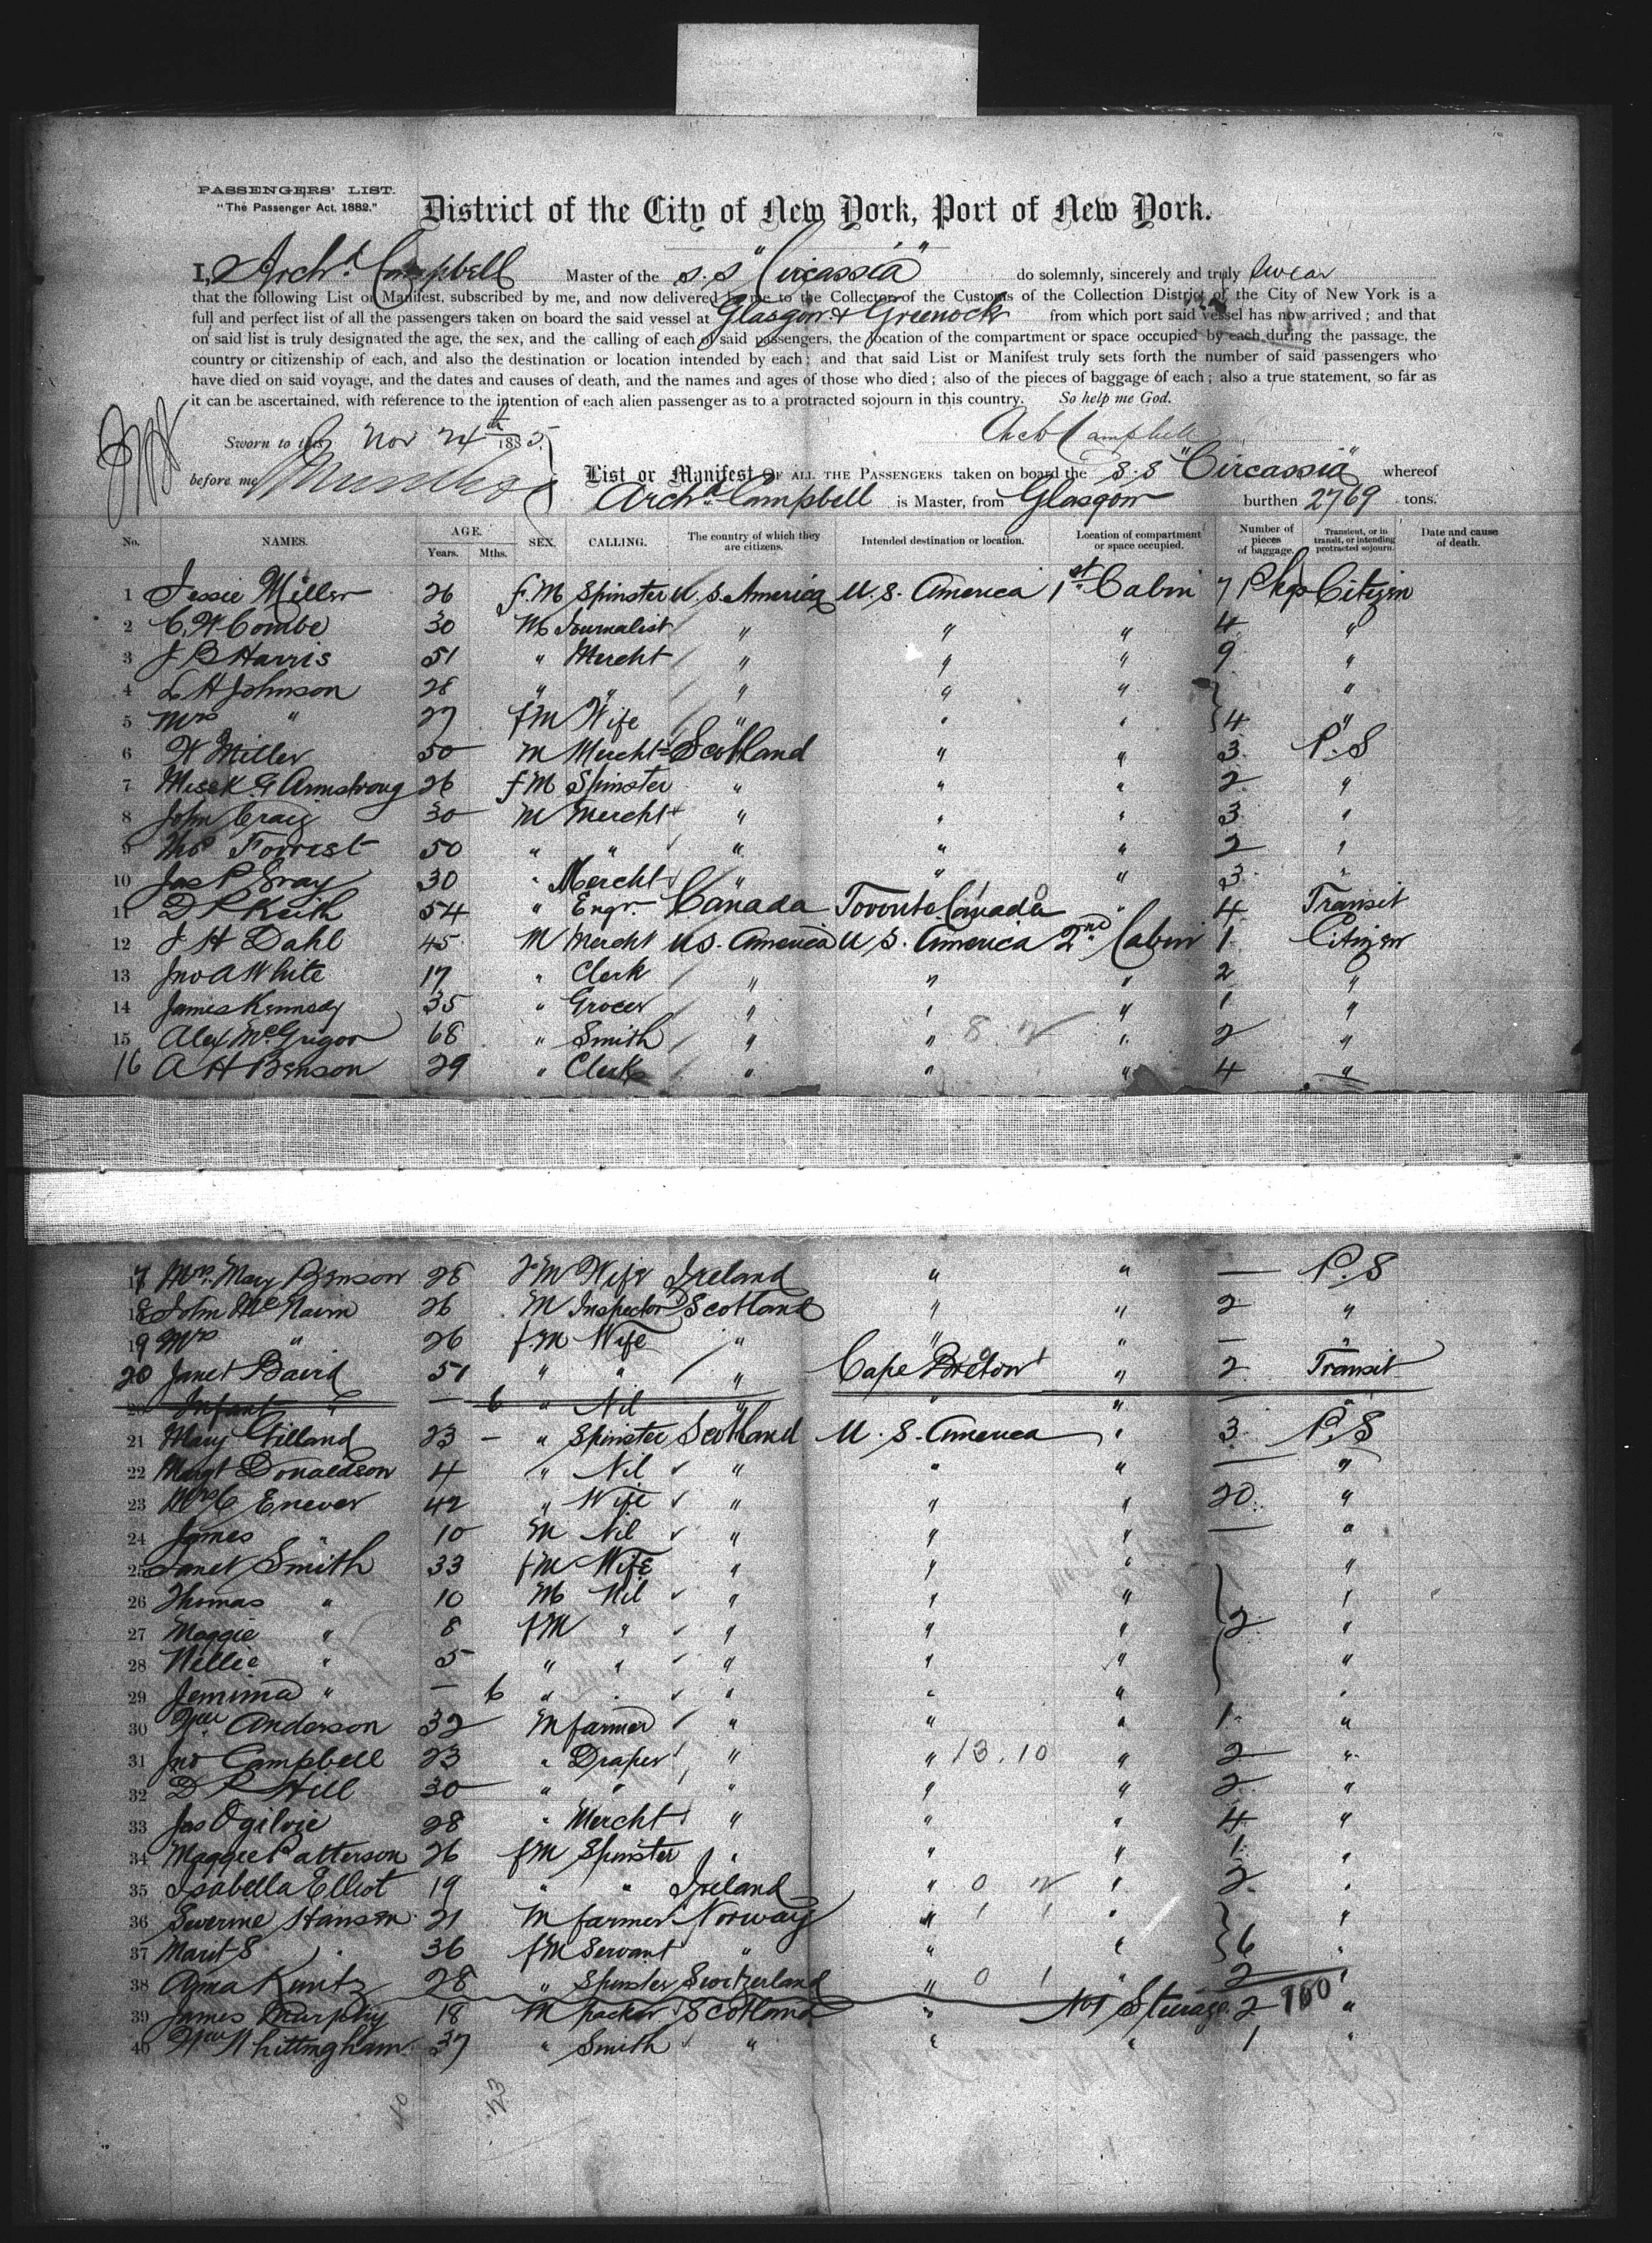 PASSENGERS' LIST.
"The Passenger Act, 1882."
District of the City of New York, Port of New York.
I, Archd. Campbell Master of the S.S "Circassia" do solemnly, sincerely and truly Swear
that the following List or Manifest, subscribed by me, and now delivered by me to the Collector of the Customs of the Collection District of the City of New York is a
full and perfect list of all the passengers taken on board the said vessel at Glasgow & Greenock from which port said vessel has now arrived; and that
on said list is truly designated the age, the sex, and the calling of each of said passengers, the location of the compartment or space occupied by each during the passage, the
country or citizenship of each, and also the destination or location intended by each; and that said List or Manifest truly sets forth the number of said passengers who
have died on said voyage, and the dates and causes of death, and the names and ages of those who died; also of the pieces of baggage of each; also a true statement, so far as
it can be ascertained, with reference to the intention of each alien passenger as to a protracted sojourn in this country. So help me God.
Sworn to this Nov 24th 1885
Archd Campbell
before me
List or Manifest OF ALL THE PASSENGERS taken on board the S.S "Circassia" whereof
Archd. Campbell is Master, from Glasgow burthen 2769 tons.
No. NAMES. AGE. Years. Mths. SEX. CALLING. The country of which they are citizens. Intended destination or location. Location of compartment or space occupied. Number of pieces of baggage. Transient, or in transit, or intending protracted sojourn. Date and cause of death.
1 Jessie Miller 26 f.M Spinster U.S. America U.S. America 1st Cabin 7 Pkgs Citizen
2 C. W Combe 30 M Journalist " " " 4 "
3 J B Harris 51 " Mercht " " " 9 "
4 L H Johnson 28 " " " " " "
5 Mrs " 27 fM Wife " " " 4 "
6 W Miller 50 M Mercht Scotland " " 3 P.S
7 Miss K G Armstrong 26 fM Spinster " " " 2 "
8 John Craig 30 M Mercht " " " 3 "
9 Thos Forrest 50 " " " " " 2 "
10 Jas P Gray 30 " Mercht " " " 3 "
11 D P Keith 54 " Engr. Canada Toronto Canada " 4 Transit
12 J H Dahl 45 M Mercht U.S. America U.S. America 2nd Cabin 1 Citizen
13 Jno A White 17 " Clerk " " " 2 "
14 James Kennedy 35 " Grocer " " " 1 "
15 Alex McGrigor 68 " Smith " " 8 " 2 "
16 A H Benson 29 " Clerk " " " 4 "
17 Mrs. Mary Benson 28 fM Wife Ireland " " — P.S
18 John McNairn 26 M Inspector Scotland " " 2 "
19 Mrs " 26 f.M Wife " " " — "
20 Janet Baird 51 " " " Cape Breton " 2 Transit
20 Infant " — 6 " Nil " " " — "
21 Mary Gilland 23 — " Spinster Scotland U.S. America " 3 P.S
22 Margt Donaldson 4 " Nil " " " — "
23 Mrs C Enever 42 " Wife " " " 20 "
24 James " 10 M Nil " " " — "
25 Janet Smith 33 fM Wife " " " "
26 Thomas " 10 M Nil " " " "
27 Maggie " 8 fM " " " " 2 "
28 Nellie " 5 " " " " " "
29 Jemima " — 6 " " " " " "
30 Wm Anderson 32 M farmer " " " 1 "
31 Jno Campbell 23 " Draper " " 13.10 " 2 "
32 D P Hill 30 " " " " " 2 "
33 Jas Ogilvie 28 " Mercht " " " 4 "
34 Maggie Patterson 26 fM Spinster " " " 1 "
35 Isabella Elliot 19 " " Ireland " 0 " 2 "
36 Severine Hansen 21 M farmer Norway " 1 1 " "
37 Marit S " 36 fM Servant " " " 6 "
38 Anna Kuntz 28 " Spinster Switzerland " 0 1 " 2 "
39 James Murphy 18 M packer Scotland " No 1 Steerage 2 100 "
40 Wm Whittingham 37 " Smith " " " 1 "
10 23